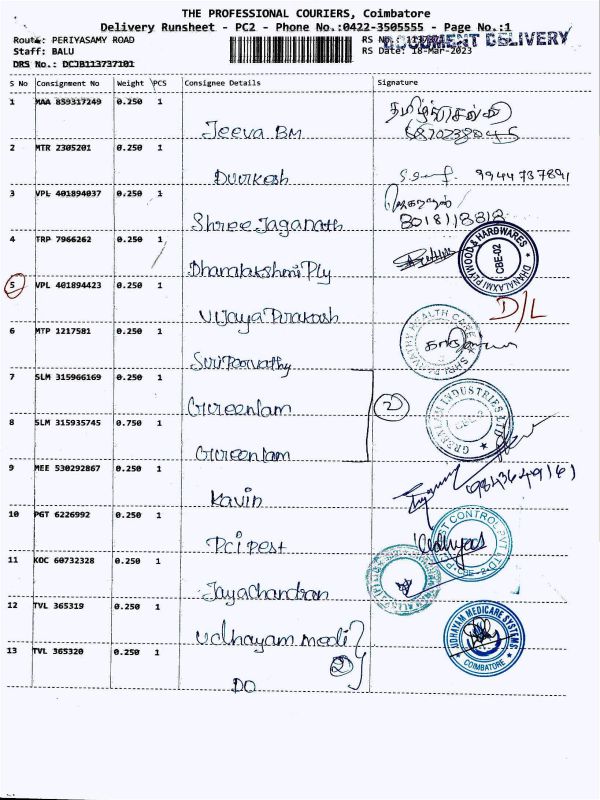 THE PROFESSIONAL COURIERS, Coimbatore
Delivery Runsheet - PC2 - Phone No.:0422-3505555 - Page No.:1
Route: PERIYASAMY ROAD
RS No.:
DOCUMENT DELIVERY
Staff: BALU
RS Date: 18-Mar-2023
DRS No.: DCJB113737101
S No Consignment No Weight PCS Consignee Details Signature
1 MAA 859317249 0.250 1
Jeeva BM
2 MTR 2305201 0.250 1
9944737891
3 VPL 401894037 0.250 1
Shree Jaganath 8018118818
4 TRP 7966262 0.250 1
Dhanalakshmi Ply
DHANALAXMI PLYWOOD & HARDWARES
CBE-02
5 VPL 401894423 0.250 1
Vijaya Prakash D/L
6 MTP 1217581 0.250 1
Sri Parvathy
SHRI PARVATHY HEALTH CARE
7 SLM 315966169 0.250 1
Greenlam 2
GREENLAM INDUSTRIES LTD
8 SLM 315935745 0.750 1
Greenlam
9 MEE 530292867 0.250 1
Kavin
10 PGT 6226992 0.250 1
Pci Pest
PEST CONTROL PVT LTD
11 KOC 60732328 0.250 1
Jayachandran
12 TVL 365319 0.250 1
Udhayam medi
UDHAYAM MEDICARE SYSTEMS
COIMBATORE
13 TVL 365320 0.250 1
2
DO